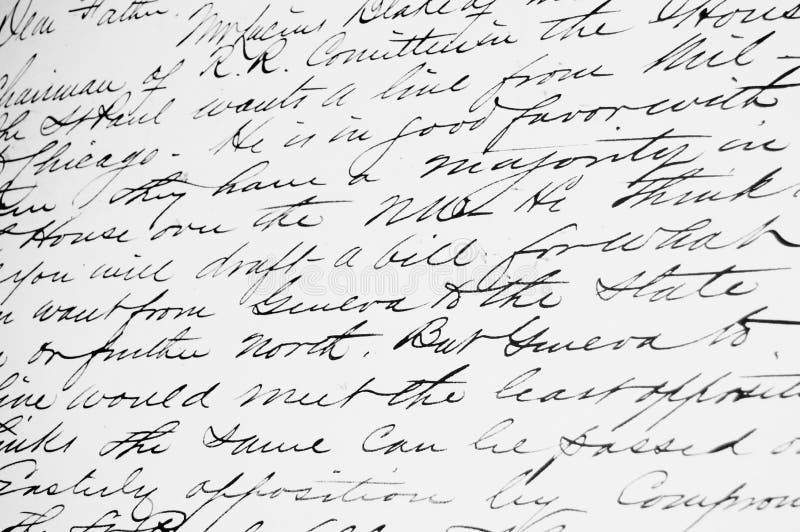 Dear Father. Mr Lucius Blake of
Chairman of R.R. Committee in the House
The St Paul wants a line from Mil-
& Chicago - He is in good favor with
They have a majority in
House over the NW - He think
you will draft a bill for what
want from Geneva to the State
or further North. But Geneva to
line would meet the least oppositi
inks the same can be passed o
Easterly opposition by Comprom
dreamstime